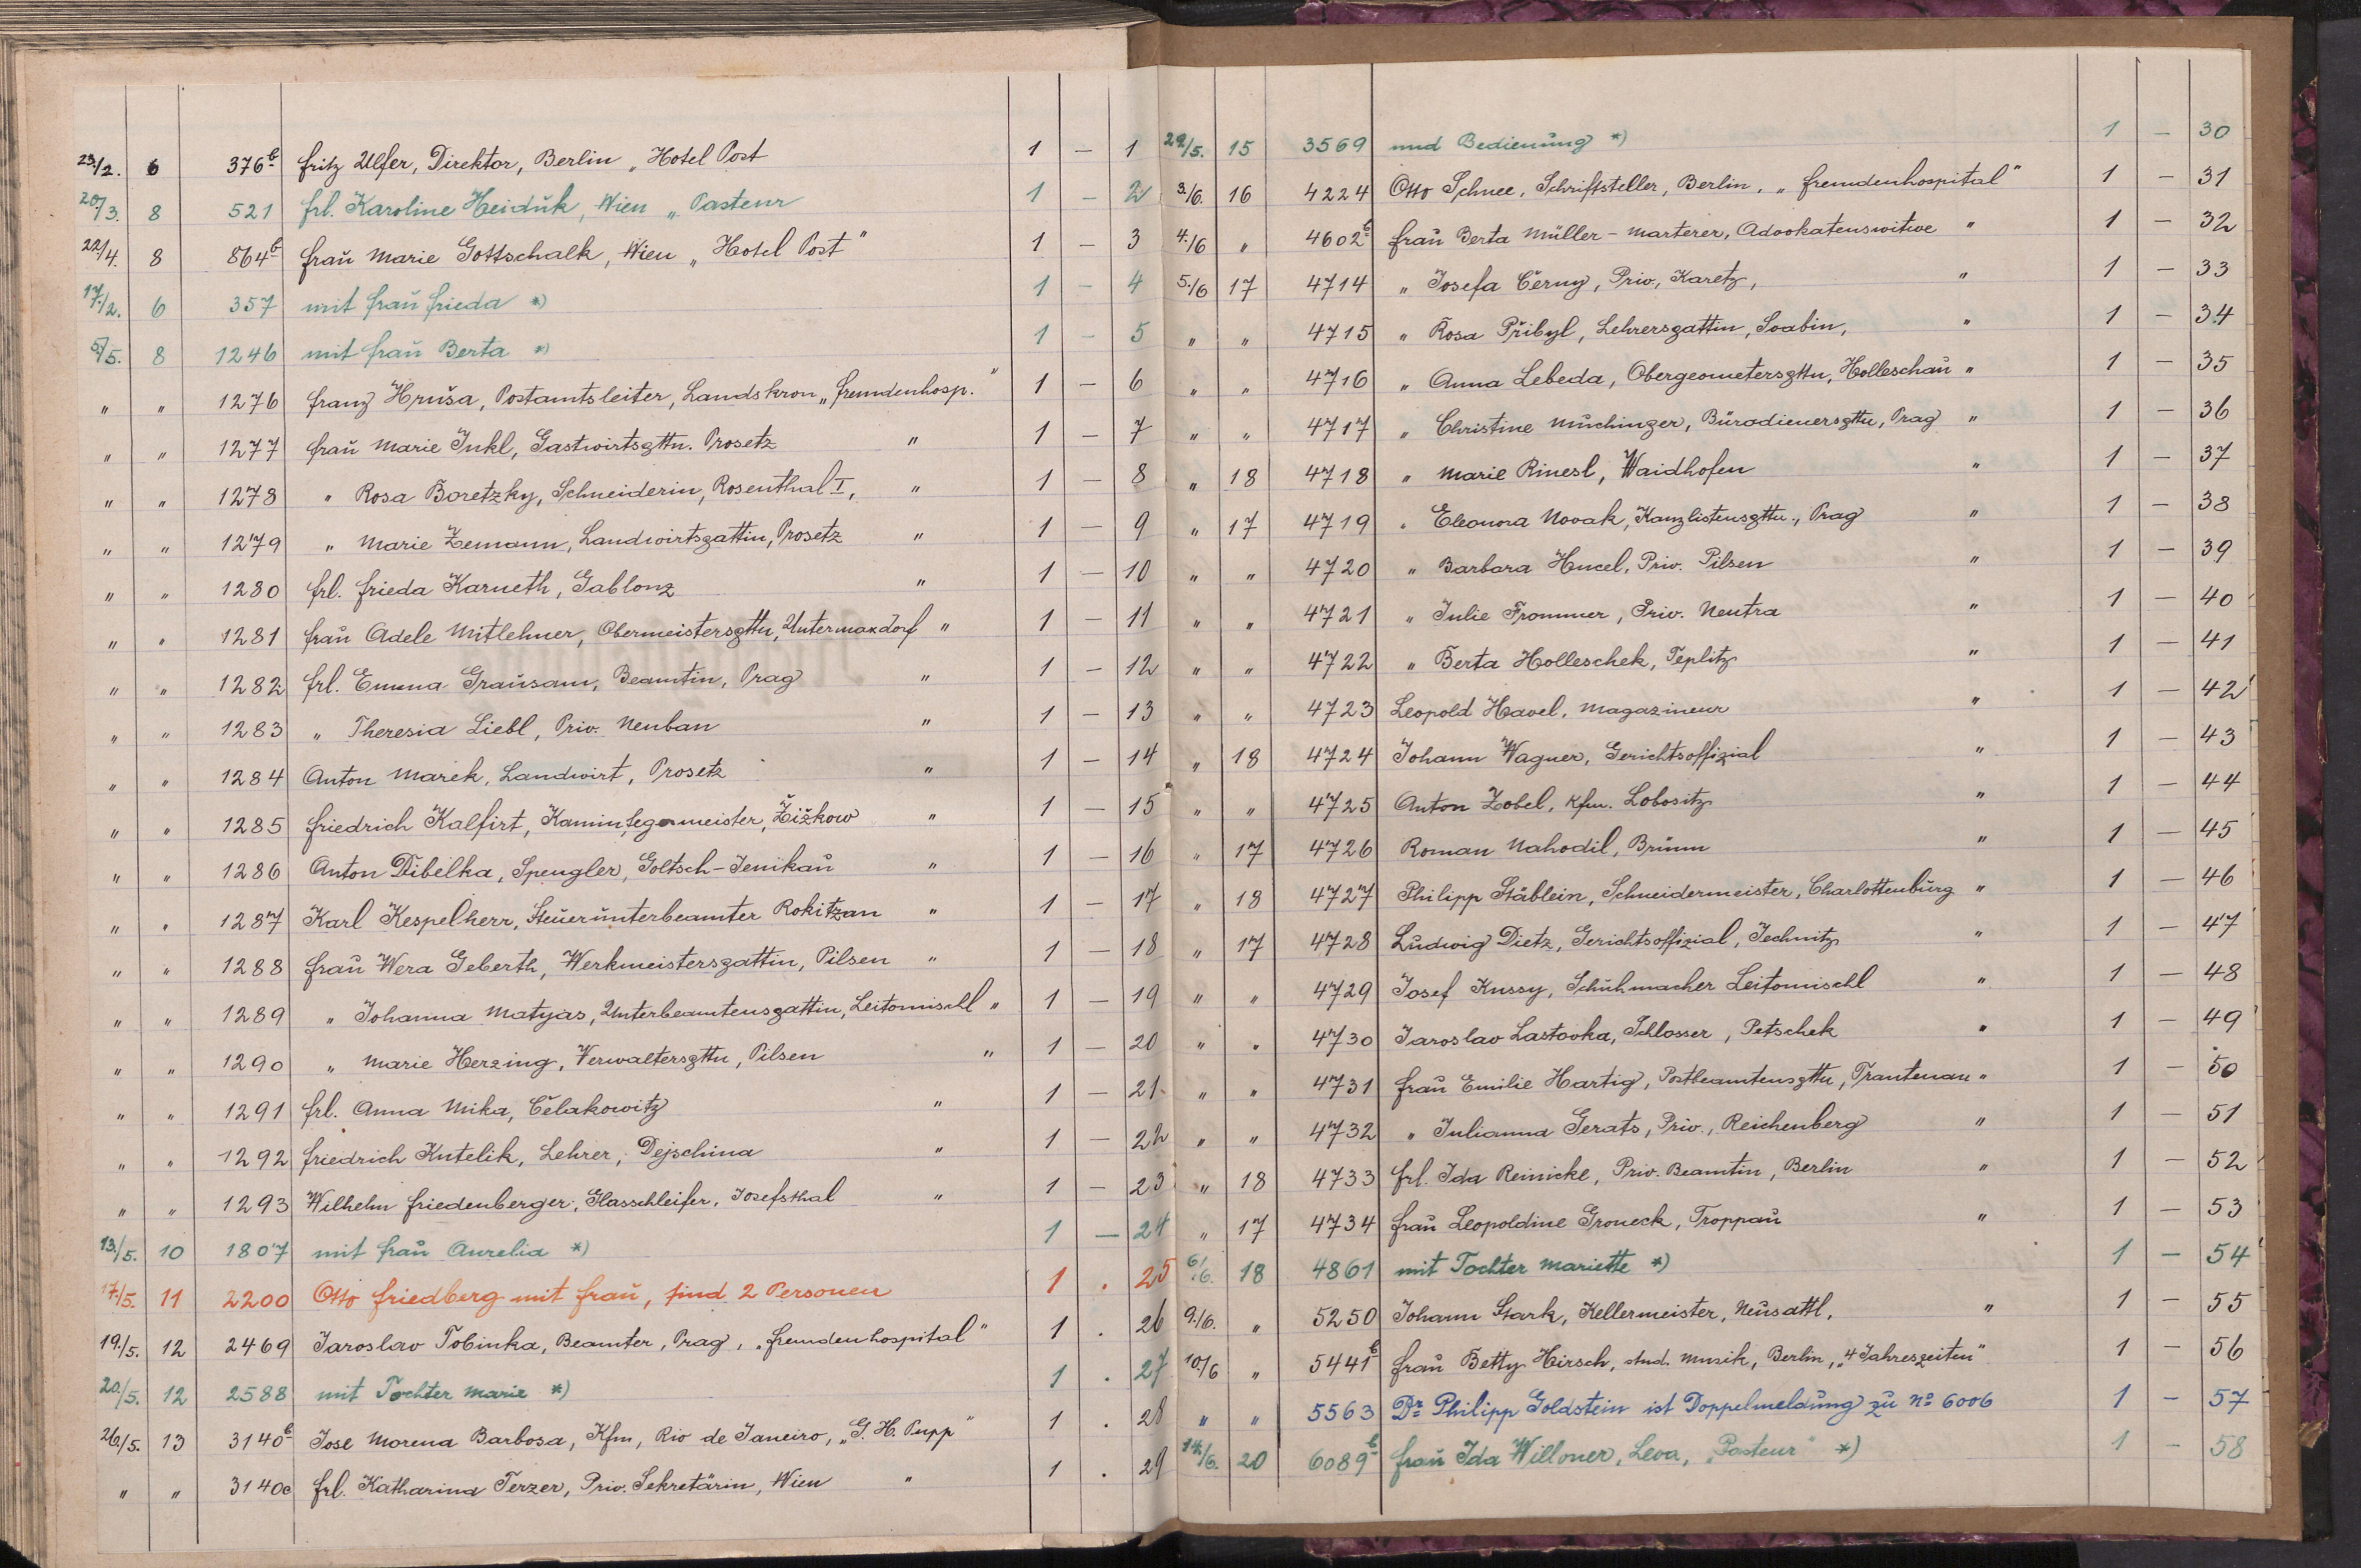 23./2. 6 376b fritz Ulfer, Direktor, Berlin „Hotel Post 1 – 1
20/3. 8 521 frl. Karoline Heiduk, Wien „Pasteur 1 – 2
22/4. 8 864b frau Marie Gottschalk, Wien „Hotel Post" 1 – 3
17./2. 6 357 mit frau frieda *) 1 – 4
5/5. 8 1246 mit frau Berta *) 1 – 5
" " 1276 franz Hruša, Postamtsleiter, Landskron „fremdenhosp." 1 – 6
" " 1277 frau Marie Inkl, Gastwirtsgttn. Prosetz " 1 – 7
" " 1278 " Rosa Boretzky, Schneiderin, Rosenthal I, " 1 – 8
" " 1279 " Marie Zemann, Landwirtsgattin, Prosetz " 1 – 9
" " 1280 frl. frieda Karneth, Gablonz " 1 – 10
" " 1281 frau Adele Mitlehner, Obermeistersgttn, Untermaxdorf " 1 – 11
" " 1282 frl. Emma Grausam, Beamtin, Prag " 1 – 12
" " 1283 " Theresia Liebl, Priv. Neubau " 1 – 13
" " 1284 Anton Marek, Landwirt, Prosetz " 1 – 14
" " 1285 friedrich Kalfirt, Kaminfegermeister, Žižkow " 1 – 15
" " 1286 Anton Dibelka, Spengler, Goltsch-Jenikau " 1 – 16
" " 1287 Karl Kespelherr, Steuerunterbeamter Rokitzan " 1 – 17
" " 1288 frau Wera Geberth, Werkmeistersgattin, Pilsen " 1 – 18
" " 1289 " Johanna Matyas, Unterbeamtensgattin, Leitomischl " 1 – 19
" " 1290 " Marie Herzing, Verwaltersgttn, Pilsen " 1 – 20
" " 1291 frl. Anna Mika, Čelakowitz " 1 – 21
" " 1292 friedrich Kutelik, Lehrer, Dejschina " 1 – 22
" " 1293 Wilhelm friedenberger, Glasschleifer, Josefsthal " 1 – 23
13./5. 10 1807 mit frau Aurelia *) 1 – 24
17./5. 11 2200 Otto friedberg mit frau, sind 2 Personen 1 . 25
19./5. 12 2469 Jaroslav Tobinka, Beamter, Prag, „fremdenhospital" 1 . 26
20./5. 12 2588 mit Tochter Marie *) 1 . 27
26./5. 13 3140b Jose Morena Barbosa, Kfm, Rio de Janeiro, „G. H. Pupp" 1 . 28
" " 3140c frl. Katharina Terzer, Priv. Sekretärin, Wien " 1 . 29
29/5. 15 3569 und Bedienung *) 1 – 30
3./6. 16 4224 Otto Schnee, Schriftsteller, Berlin, „fremdenhospital" 1 – 31
4./6 " 4602b frau Berta Müller-Marterer, Advokatenswitwe " 1 – 32
5./6 17 4714 " Josefa Černy, Priv., Karetz, " 1 – 33
" " 4715 " Rosa Přibyl, Lehrersgattin, Svabin, " 1 – 34
" " 4716 " Anna Lebeda, Obergeometersgttn, Holleschau " 1 – 35
" " 4717 " Christine Muchinger, Bürodienersgttn, Prag " 1 – 36
" 18 4718 " Marie Rinesl, Waidhofen " 1 – 37
" 17 4719 " Eleonora Novak, Kanzlistensgttn., Prag " 1 – 38
" " 4720 " Barbara Hucel, Priv. Pilsen " 1 – 39
" " 4721 " Julie Frommer, Priv. Neutra " 1 – 40
" " 4722 " Berta Holleschek, Teplitz " 1 – 41
" " 4723 Leopold Havel, Magazineur " 1 – 42
" 18 4724 Johann Wagner, Gerichtsoffizial " 1 – 43
" " 4725 Anton Zobel, Kfm. Lobositz " 1 – 44
" 17 4726 Roman Nahodil, Brünn " 1 – 45
" 18 4727 Philipp Stäblein, Schneidermeister, Charlottenburg " 1 – 46
" 17 4728 Ludwig Dietz, Gerichtsoffizial, Jechnitz " 1 – 47
" " 4729 Josef Kussy, Schuhmacher Leitomischl " 1 – 48
" " 4730 Jaroslav Lastovka, Schlosser, Petschek " 1 – 49
" " 4731 frau Emilie Hartig, Postbeamtensgttn, Trautenau " 1 – 50
" " 4732 " Julianna Gerats, Priv., Reichenberg " 1 – 51
" 18 4733 frl. Ida Reinicke, Priv. Beamtin, Berlin " 1 – 52
" 17 4734 frau Leopoldine Groneck, Troppau " 1 – 53
6/6. 18 4861 mit Tochter Mariette *) 1 – 54
9./6. " 5250 Johann Stark, Kellermeister, Neusattl, " 1 – 55
10/6 " 5441b frau Betty Hirsch, stud. Musik, Berlin, „4 Jahreszeiten" 1 – 56
" " 5563 Dr. Philipp Goldstein ist Doppelmeldung zu No 6006 1 – 57
14./6. 20 6089b frau Ida Willoner, Leva, „Pasteur" *) 1 – 58